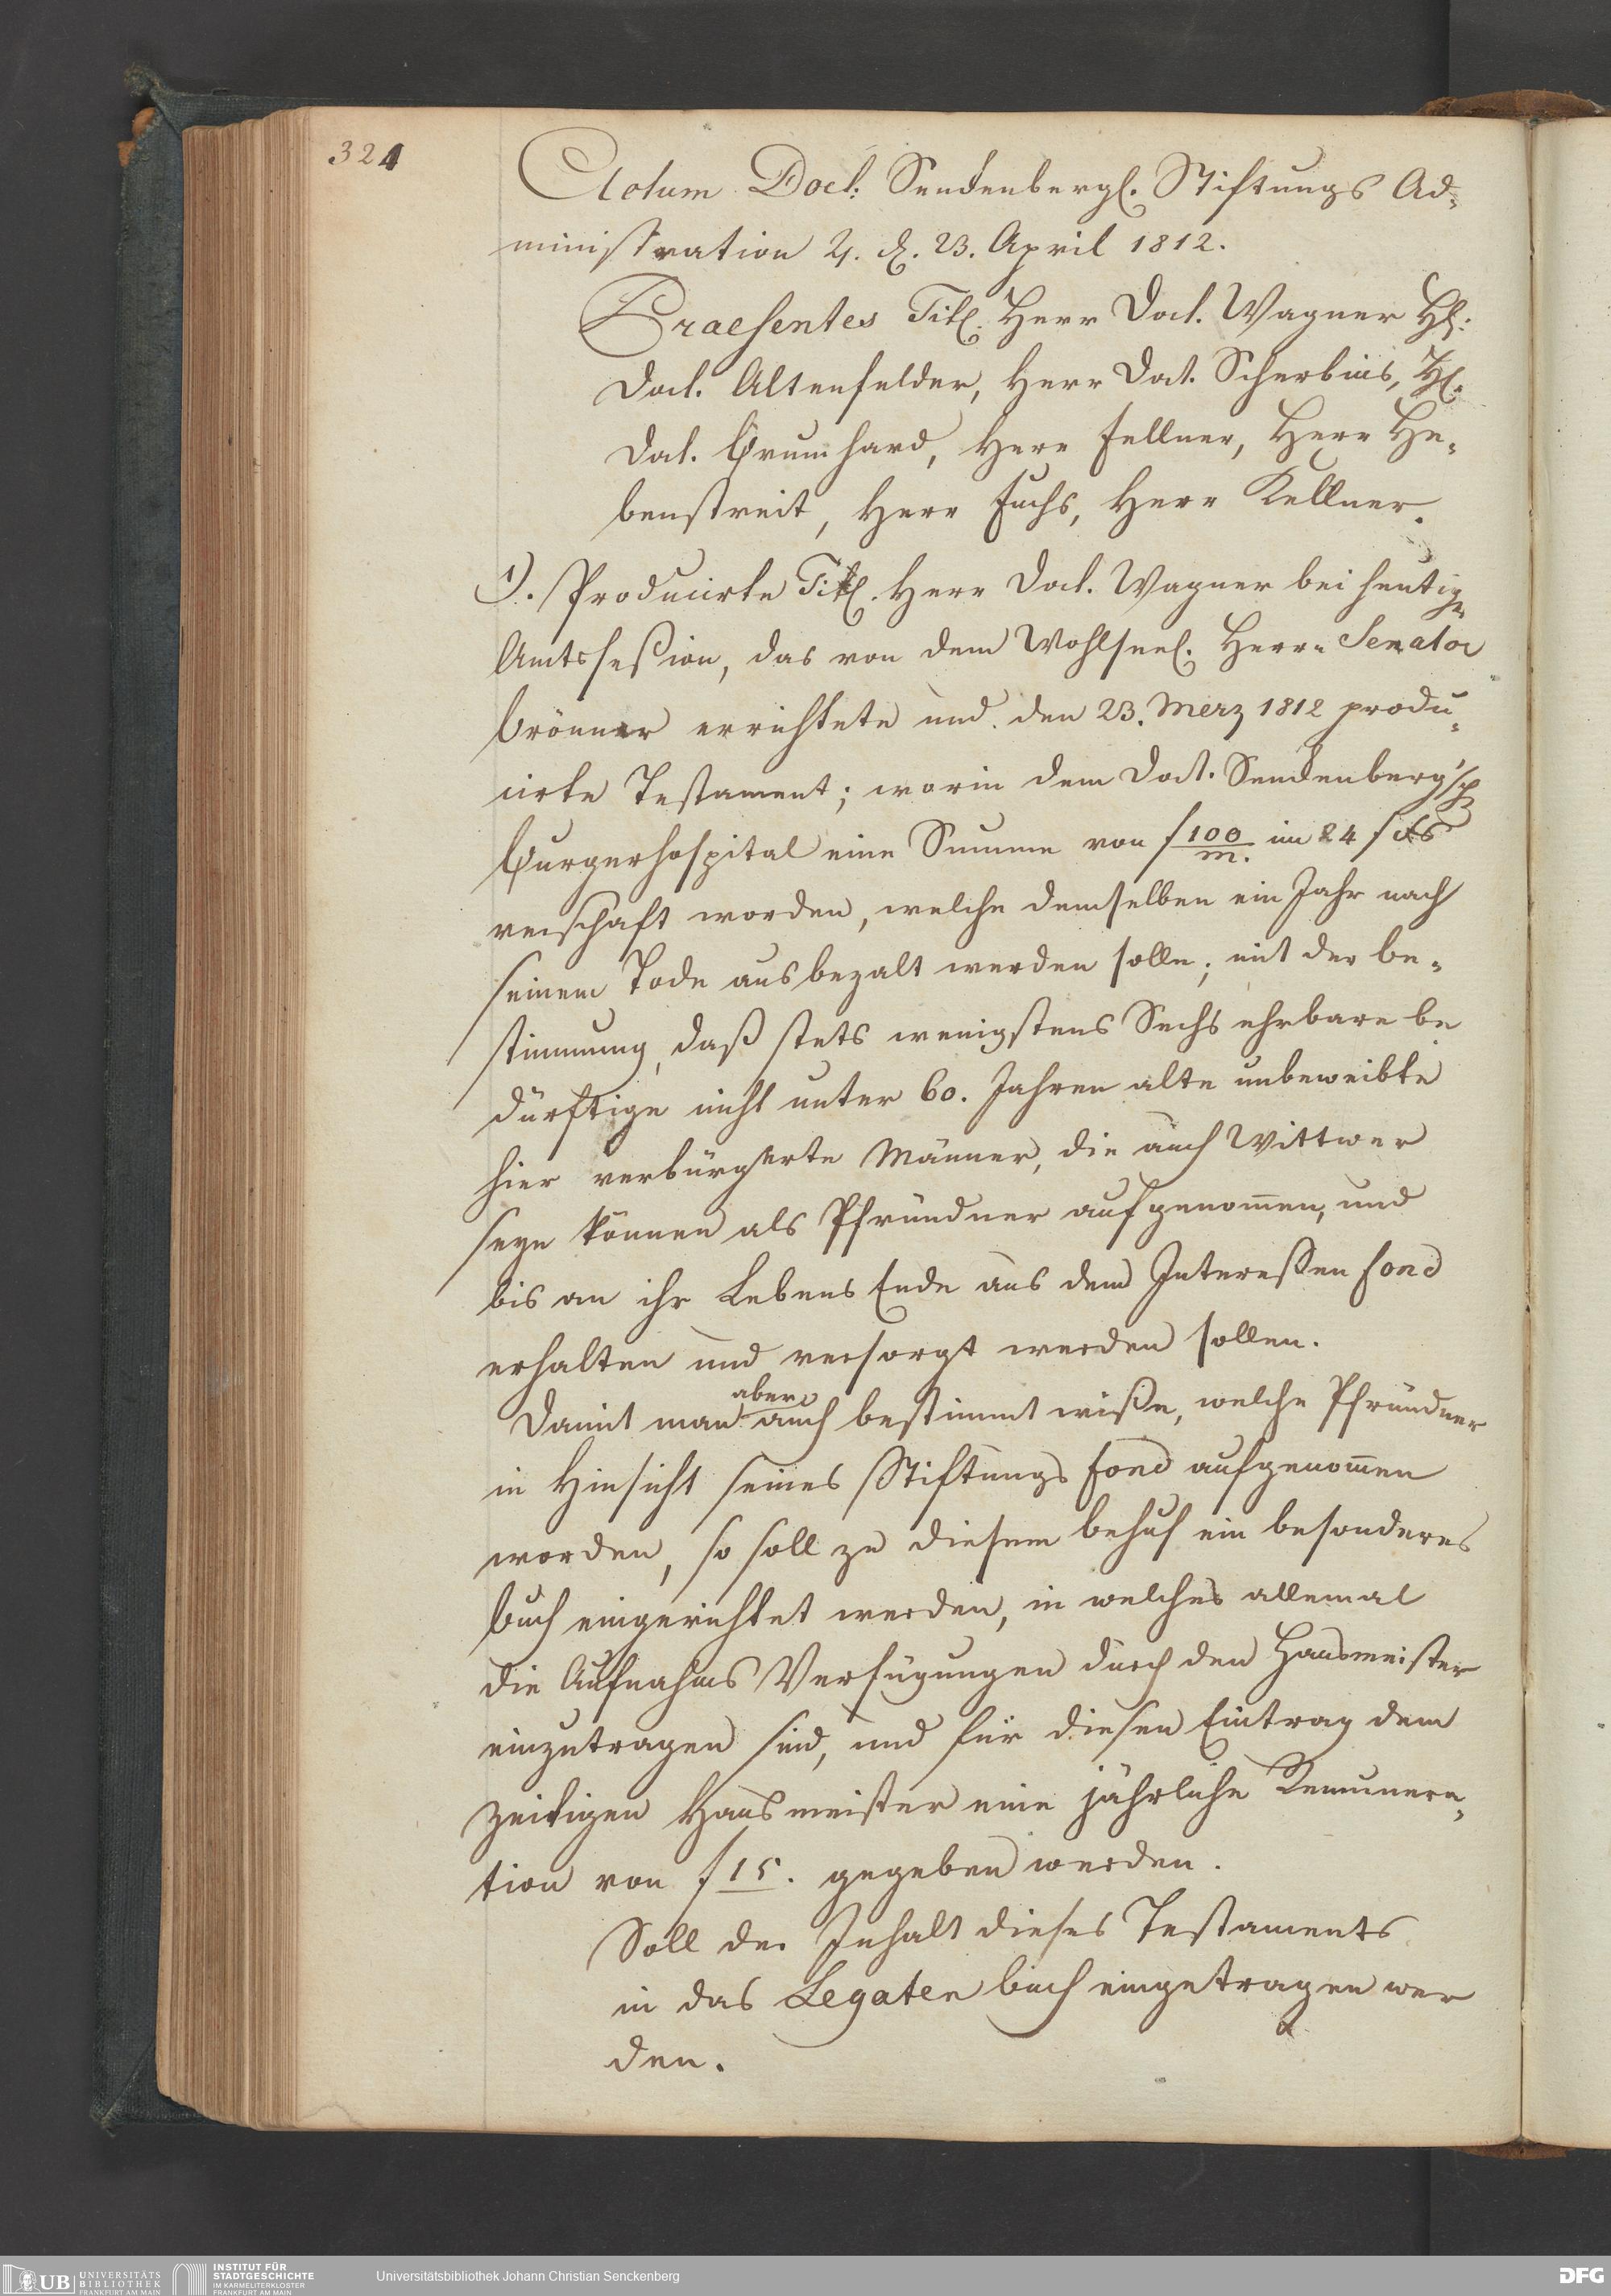 324
Actum Doct. Senckenbergl. Stiftungs Ad-
ministration 4. d. 23. April 1812.
Praesentes Titl. Herr Doct. Wagner H:
Doct. Altenfelder, Herr Doct. Scherbius, H:
Doct. Grunhard, Herr Fellner, Herr He-
benstreit, Herr Fuchs, Herr Kellner.
1). Producirte Titl. Herr Doct. Wagner bei heutiger
Amtssession, das von dem Wohlseel. Herrn Senator
Brönner errichtete und den 23. Merz 1812 produ-
cirte Testament; worin dem Doct. Senckenberg'sch
Burgerhospital eine Summe von f 100/m. im 24 f
verschaft worden, welche demselben ein Jahr nach
seinem Tode ausbezalt werden solle; mit der be-
stimmung, daß stets wenigstens Sechs ehrbare be
dürftige nicht unter 60. Jahren alte unbeweibte
hier verbürgerte Männer, die auch Wittwer
seyn können als Pfründner aufgenom̅en, und
bis an ihr Lebens Ende aus dem Interessen fond
erhalten und versorgt werden sollen.
Damit man aber auch bestimmt wiße, welche Pfründner
in Hinsicht seines Stiftungs fond aufgenom̅en
worden, so soll zu diesem behuf ein besonderes
buch eingerichtet werden, in welches allemal
die Aufnahms Verfügungen durch den Hausmeister
einzutragen sind, und für diesen Eintrag dem
zeitigen Hausmeister eine jährliche Remunera-
tion von f 15. gegeben werden.
Soll der Inhalt dieses Testaments
in das Legaten buch eingetragen wer
den.
UB UNIVERSITÄTS
BIBLIOTHEK
FRANKFURT AM MAIN
INSTITUT FÜR
STADTGESCHICHTE
IM KARMELITERKLOSTER
FRANKFURT AM MAIN
Universitätsbibliothek Johann Christian Senckenberg
DFG